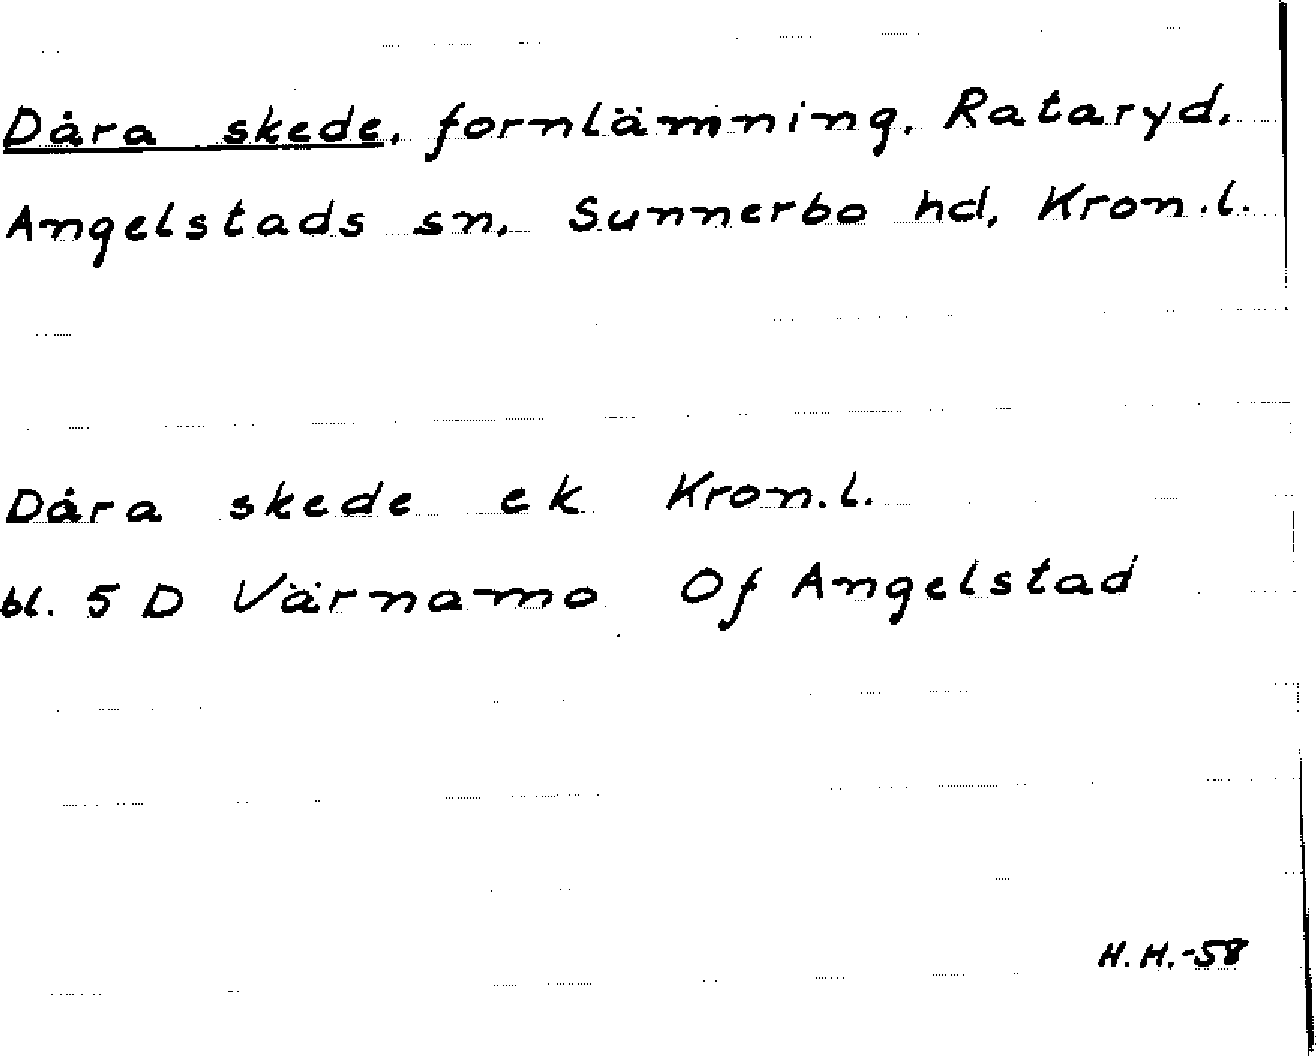 Dåra skede, fornlämning, Rataryd,
Angelstads sn, Sunnerbo hd, Kron.l.
Dåra skede ek Kron.l.
bl. 5 D Värnamo Of Angelstad
H.H.-58